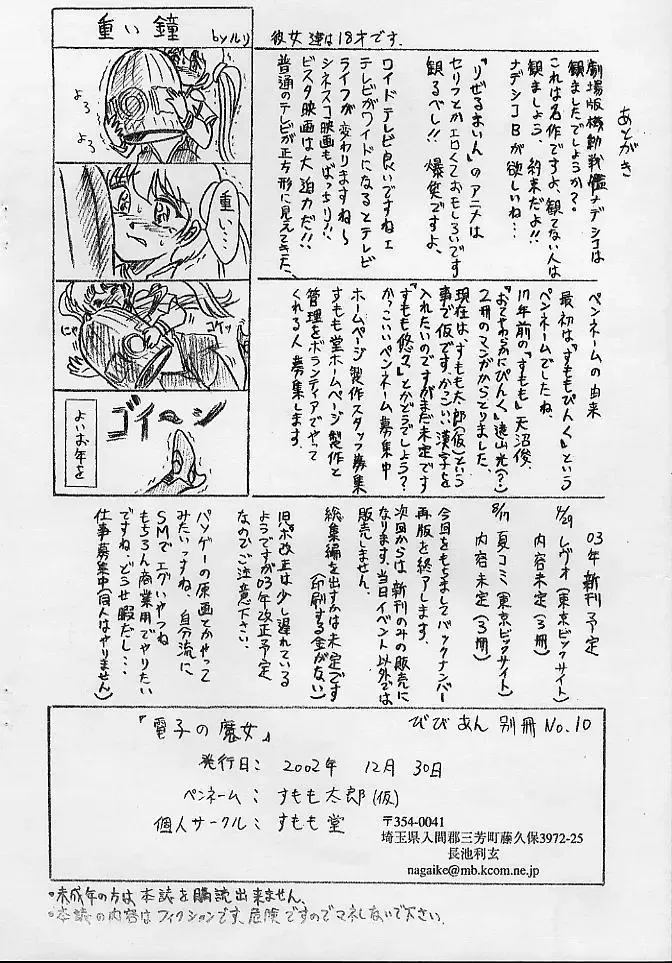 重い鐘
byルリ
よろ
よろ
重い…
にゃ
コケッ
ゴイ〜ン
よいお年を
彼女達は18才です.
あとがき
劇場版機動戦艦ナデシコは
観ましたでしょうか?
これは名作ですよ、観てない人は
観ましょう、約束だよ!!
ナデシコBが欲しいね…
『りぜるまいん』のアニメは
セリフとかエロくておもしろいです
観るべし!! 爆笑ですよ、
ワイドテレビ良いですねェ
テレビがワイドになるとテレビ
ライフが変わりますね〜
シネスコ映画もばっちり!!
ビスタ映画は大迫力だ!!
普通のテレビが正方形に見えてきた、
ペンネームの由来
最初は『すももぴんく』という
ペンネームでしたね、
17年前の『すもも』天沼俊、
『おてやわらかにぴんく』遠山光(?)
2冊のマンガからとりました、
現在は、すもも太郎(仮)という
事で仮です、かっこいい漢字を
入れたいのですがまだ未定です
『すもも悠久』とかどうでしょう?
かっこいいペンネーム募集中
ホームページ製作スタッフ募集
すもも堂ホームページ製作と
管理をボランティアでやって
くれる人募集します、
03年新刊予定
4/29 レヴォ(東京ビックサイト)
内容未定(3冊)
8/17 夏コミ(東京ビックサイト)
内容未定(3冊)
今回をもちましてバックナンバー
再版を終了します、
次回からは、新刊のみの販売に
なります、当日イベント以外では
販売しません、
総集編を出すかは未定です
(印刷する金がない)
児ポ改正は少し遅れている
ようですが03年改正予定
なのでご注意下さい、
パソゲーの原画とかやって
みたいっすね、自分流に
SMでエグいやつね
もちろん商業用でやりたい
ですね、どうせ暇だし…
仕事募集中(同人はやりません)
『電子の魔女』
びびあん 別冊 No.10
発行日: 2002年 12月 30日
ペンネーム: すもも太郎(仮)
個人サークル: すもも堂
〒354-0041
埼玉県入間郡三芳町藤久保3972-25
長池利玄
nagaike@mb.kcom.ne.jp
•未成年の方は、本誌を購読出来ません、
•本誌の内容はフィクションです、危険ですのでマネしないで下さい.